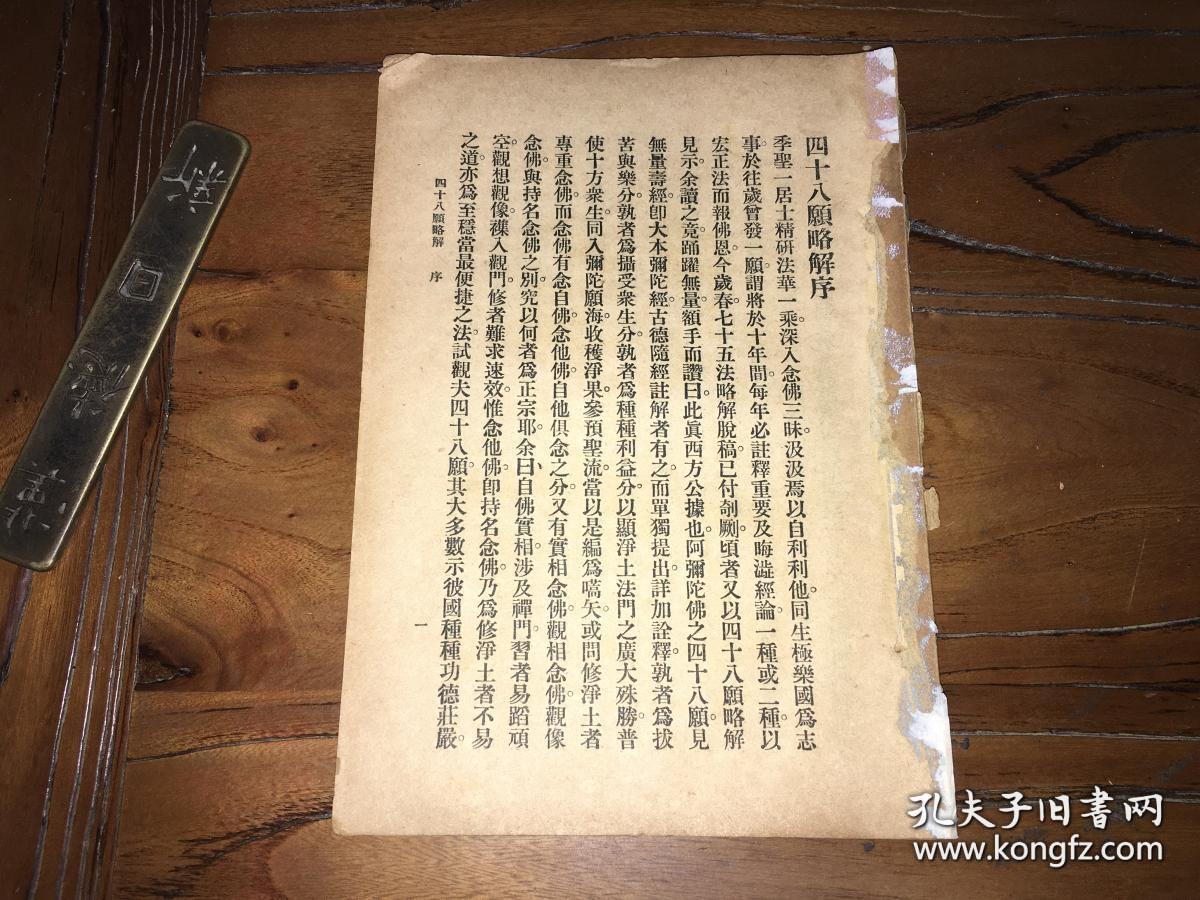 四十八願略解序
季聖一居士精研法華一乘。深入念佛三昧。汲汲焉以自利利他。同生極樂國爲志
事。於往歲曾發一願。謂將於十年間。每年必註釋重要及晦澁經論一種或二種。以
宏正法而報佛恩。今歲春七十五法略解脫稿。已付剞劂。頃者又以四十八願略解
見示。余讀之竟。踊躍無量。額手而讚曰。此眞西方公據也。阿彌陀佛之四十八願。見
無量壽經。卽大本彌陀經。古德隨經註解者有之。而單獨提出。詳加詮釋。孰者爲拔
苦與樂分。孰者爲攝受衆生分。孰者爲種種利益分。以顯淨土法門之廣大殊勝。普
使十方衆生。同入彌陀願海。收穫淨果。參預聖流。當以是編爲嚆矢。或問修淨土者
專重念佛。而念佛有念自佛。念他佛。自他俱念之分。又有實相念佛。觀相念佛。觀像
念佛。與持名念佛之別。究以何者爲正宗耶。余曰、自佛實相。涉及禪門。習者易蹈頑
空。觀想觀像。襍入觀門。修者難求速效。惟念他佛。卽持名念佛。乃爲修淨土者不易
之道。亦爲至穩當最便捷之法。試觀夫四十八願。其大多數示彼國種種功德莊嚴。
四十八願略解 序
一
孔夫子旧书网
www.kongfz.com